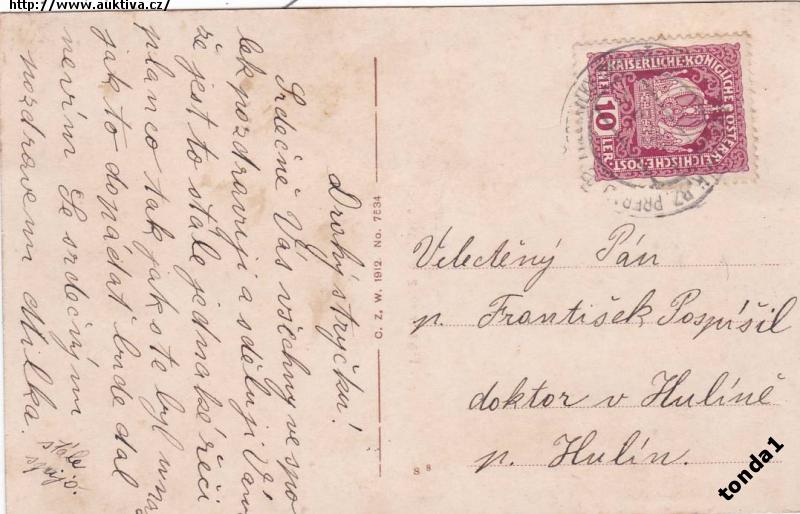 http://www.auktiva.cz/
Drahý strýčku!
Srdečně Vás všechny ve spo
lek pozdravuji a sděluji Vám
že jest to stále jednaké řeči
plano tak jak ste byl u nás
jak to dopádať bude dál
nevím Se srdečným
pozdravem Milka.
stále
C. Z. W. 1912 No. 7534
KAISERLICHE KÖNIGLICHE ÖSTERREICHISCHE POST
10
Velectěný Pán
p. František Pospíšil
doktor v Hulíně
p. Hulín.
S 8
tonda1